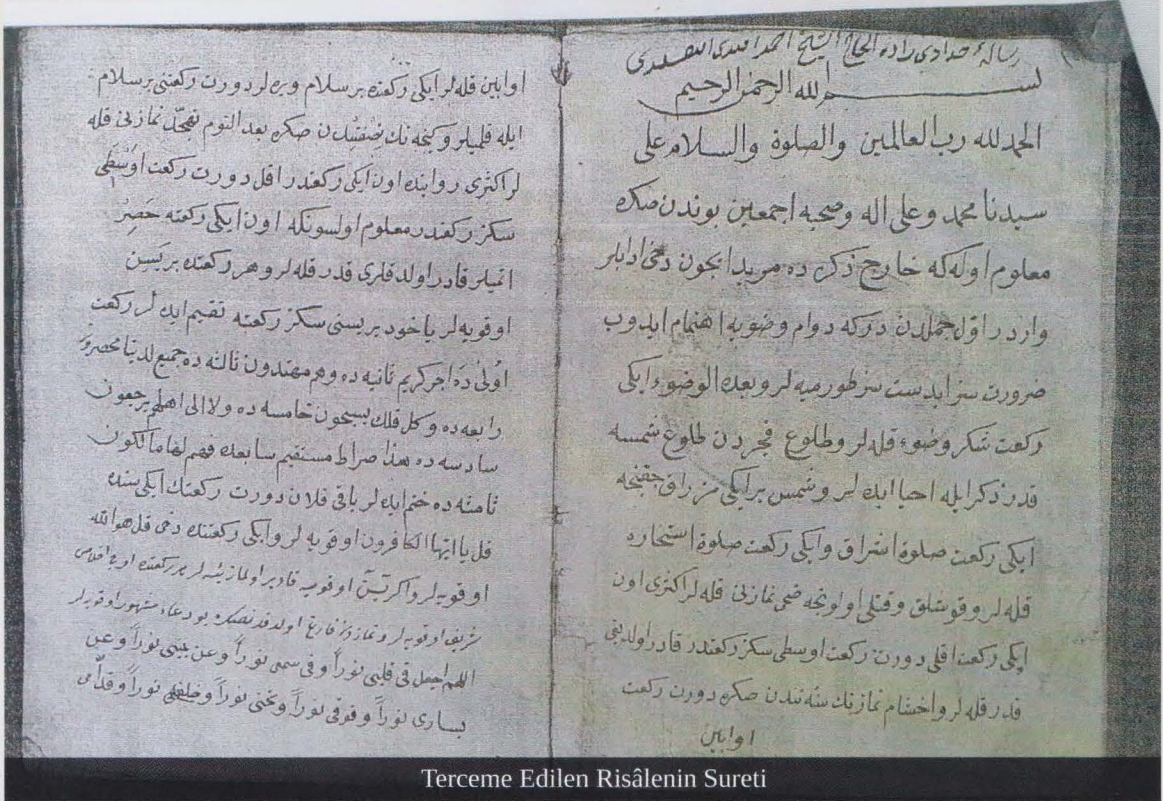 رسالهٔ حدادی زاده الحاج الشیخ احمد افندی
بسم الله الرحمن الرحیم
الحمد لله رب العالمین والصلوة والسلام علی
سیدنا محمد وعلی اله وصحبه اجمعین بوندن صکره
معلوم اوله که خارج ذکرده مریدایچون دخی ادابلر
واردر اول جمله‌دن درکه دوام وضویه اهتمام ایدوب
ضرورت سز ابدست سز طورمیه لر وبعد الوضوء ایکی
رکعت شکر وضوء قله لر وطلوع فجردن طلوع شمسه
قدر ذکرایله احیا ایده لر وشمس برایکی مزراق چقنجه
ایکی رکعت صلوة اشراق وایکی رکعت صلوة استخاره
قله لر وقوشلق وقتی اولونجه ضحی نمازنی قله لر اکثری اون
ایکی رکعت اقلی دورت رکعت اوسطی سکز رکعتدر قادر اولدیغی
قدر قله لر واخشام نمازنك سنتندن صکره دورت رکعت
اوابین
اوابین قله لر ایکی رکعتده بر سلام ویره لر دورت رکعتی بر سلام
ایله قلمیلر وکیجه نك نصفندن صکره بعد النوم تهجد نمازنی قله
لر اکثری روایتده اون ایکی رکعتدر اقل دورت رکعت اوسطی
سکز رکعتدر معلوم اولسونکه اون ایکی رکعته حصر
اتمیلر قادر اولدقلری قدر قله لر وهر رکعتده بر یسین
اوقویه لر یاخود بر یسنی سکز رکعته تقسیم ایده لر رکعت
اولی ده اجر کریم ثانیه ده وهم مهتدون ثالثه ده جمیع لدینا محضرون
رابعه ده وکل فلك یسبحون خامسه ده ولا الی اهلهم یرجعون
سادسه ده هذا صراط مستقیم سابعه ده فهم لها مالکون
ثامنه ده ختم ایده لر باقی قلان دورت رکعتك ایکی سنده
قل یا ایها الکافرون اوقویه لر وایکی رکعتنده دخی قل هو الله
اوقویه لر واکر یسن اوقومیه قادر اولمازیسه لر هر رکعتده اوچ اخلاص
شریف اوقویه لر ونمازدن فارغ اولدقدنصکره بو دعاء مشهور اوقویه لر
اللهم اجعل فی قلبی نوراً وفی سمعی نوراً وعن یمینی نوراً وعن
یساری نوراً وفوقی نوراً وتحتی نوراً وخلفی نوراً وقدامی
Terceme Edilen Risâlenin Sureti